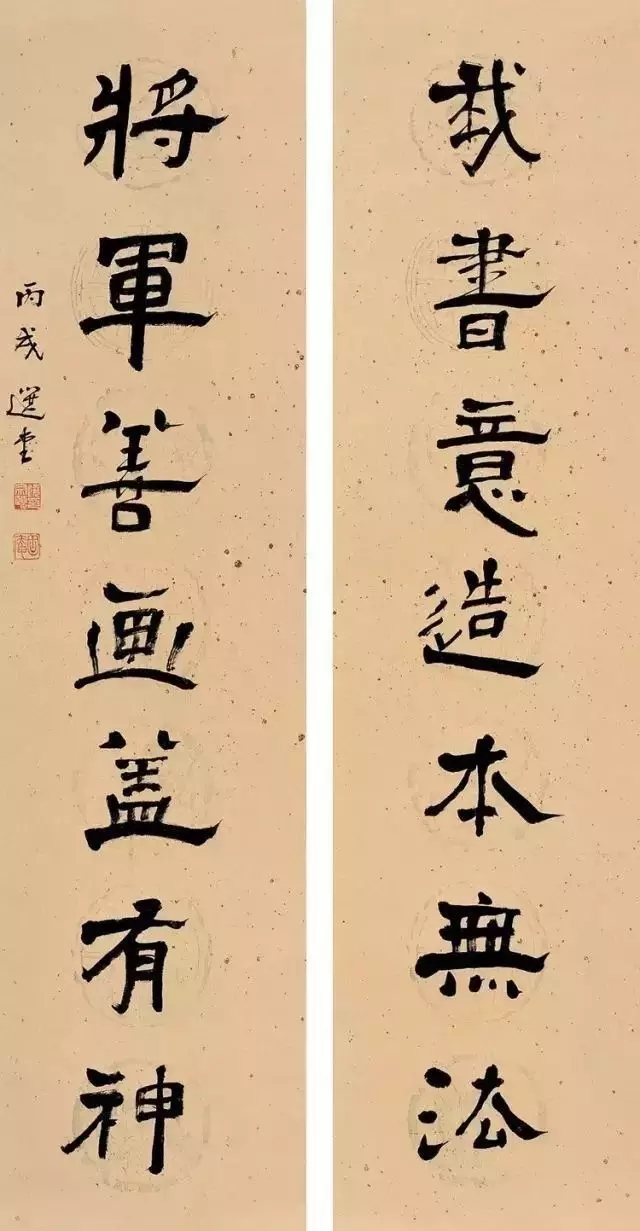 我書意造本無法
將軍善画蓋有神
丙戌 選堂